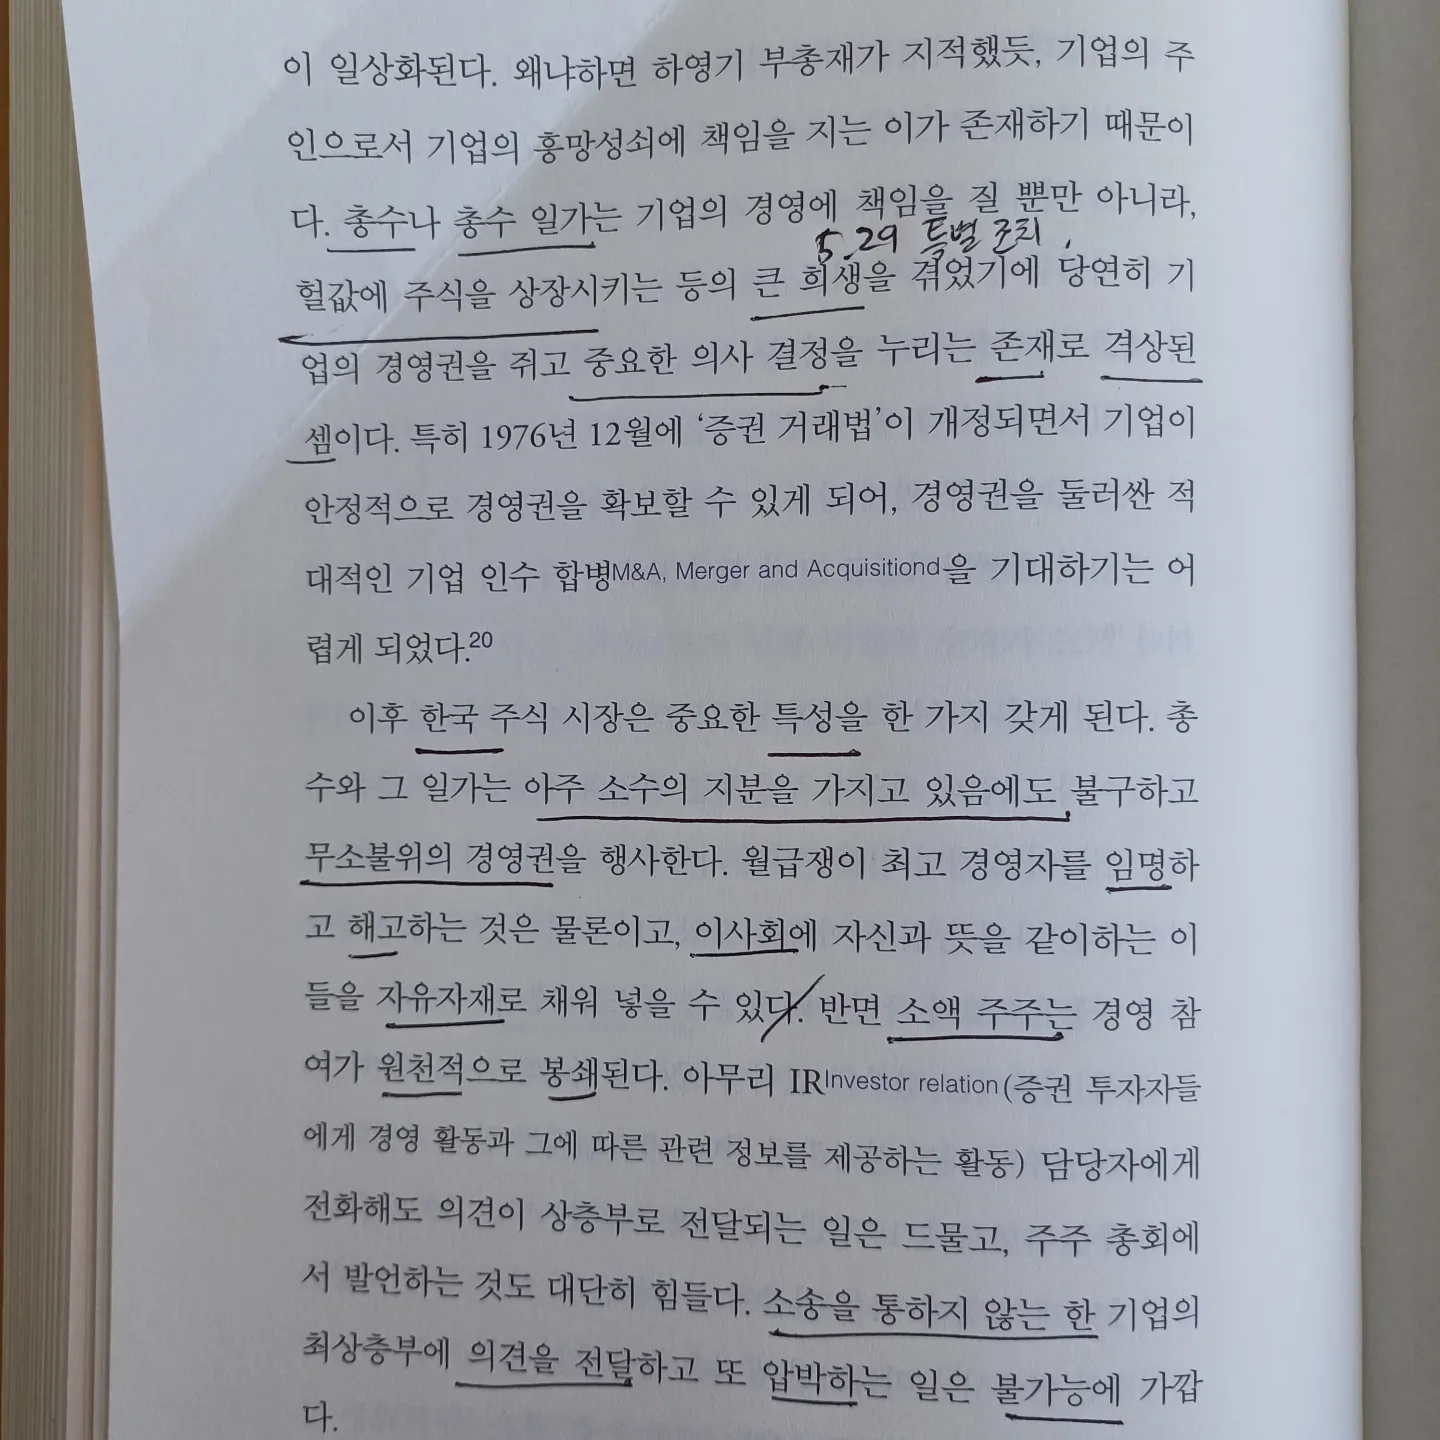 이 일상화된다. 왜냐하면 하영기 부총재가 지적했듯, 기업의 주
인으로서 기업의 흥망성쇠에 책임을 지는 이가 존재하기 때문이
다. 총수나 총수 일가는 기업의 경영에 책임을 질 뿐만 아니라,
5.29 특별 조치,
헐값에 주식을 상장시키는 등의 큰 희생을 겪었기에 당연히 기
업의 경영권을 쥐고 중요한 의사 결정을 누리는 존재로 격상된
셈이다. 특히 1976년 12월에 ‘증권 거래법’이 개정되면서 기업이
안정적으로 경영권을 확보할 수 있게 되어, 경영권을 둘러싼 적
대적인 기업 인수 합병M&A, Merger and Acquisitiond을 기대하기는 어
렵게 되었다.20
이후 한국 주식 시장은 중요한 특성을 한 가지 갖게 된다. 총
수와 그 일가는 아주 소수의 지분을 가지고 있음에도 불구하고
무소불위의 경영권을 행사한다. 월급쟁이 최고 경영자를 임명하
고 해고하는 것은 물론이고, 이사회에 자신과 뜻을 같이하는 이
들을 자유자재로 채워 넣을 수 있다. 반면 소액 주주는 경영 참
여가 원천적으로 봉쇄된다. 아무리 IRInvestor relation(증권 투자자들
에게 경영 활동과 그에 따른 관련 정보를 제공하는 활동) 담당자에게
전화해도 의견이 상층부로 전달되는 일은 드물고, 주주 총회에
서 발언하는 것도 대단히 힘들다. 소송을 통하지 않는 한 기업의
최상층부에 의견을 전달하고 또 압박하는 일은 불가능에 가깝
다.